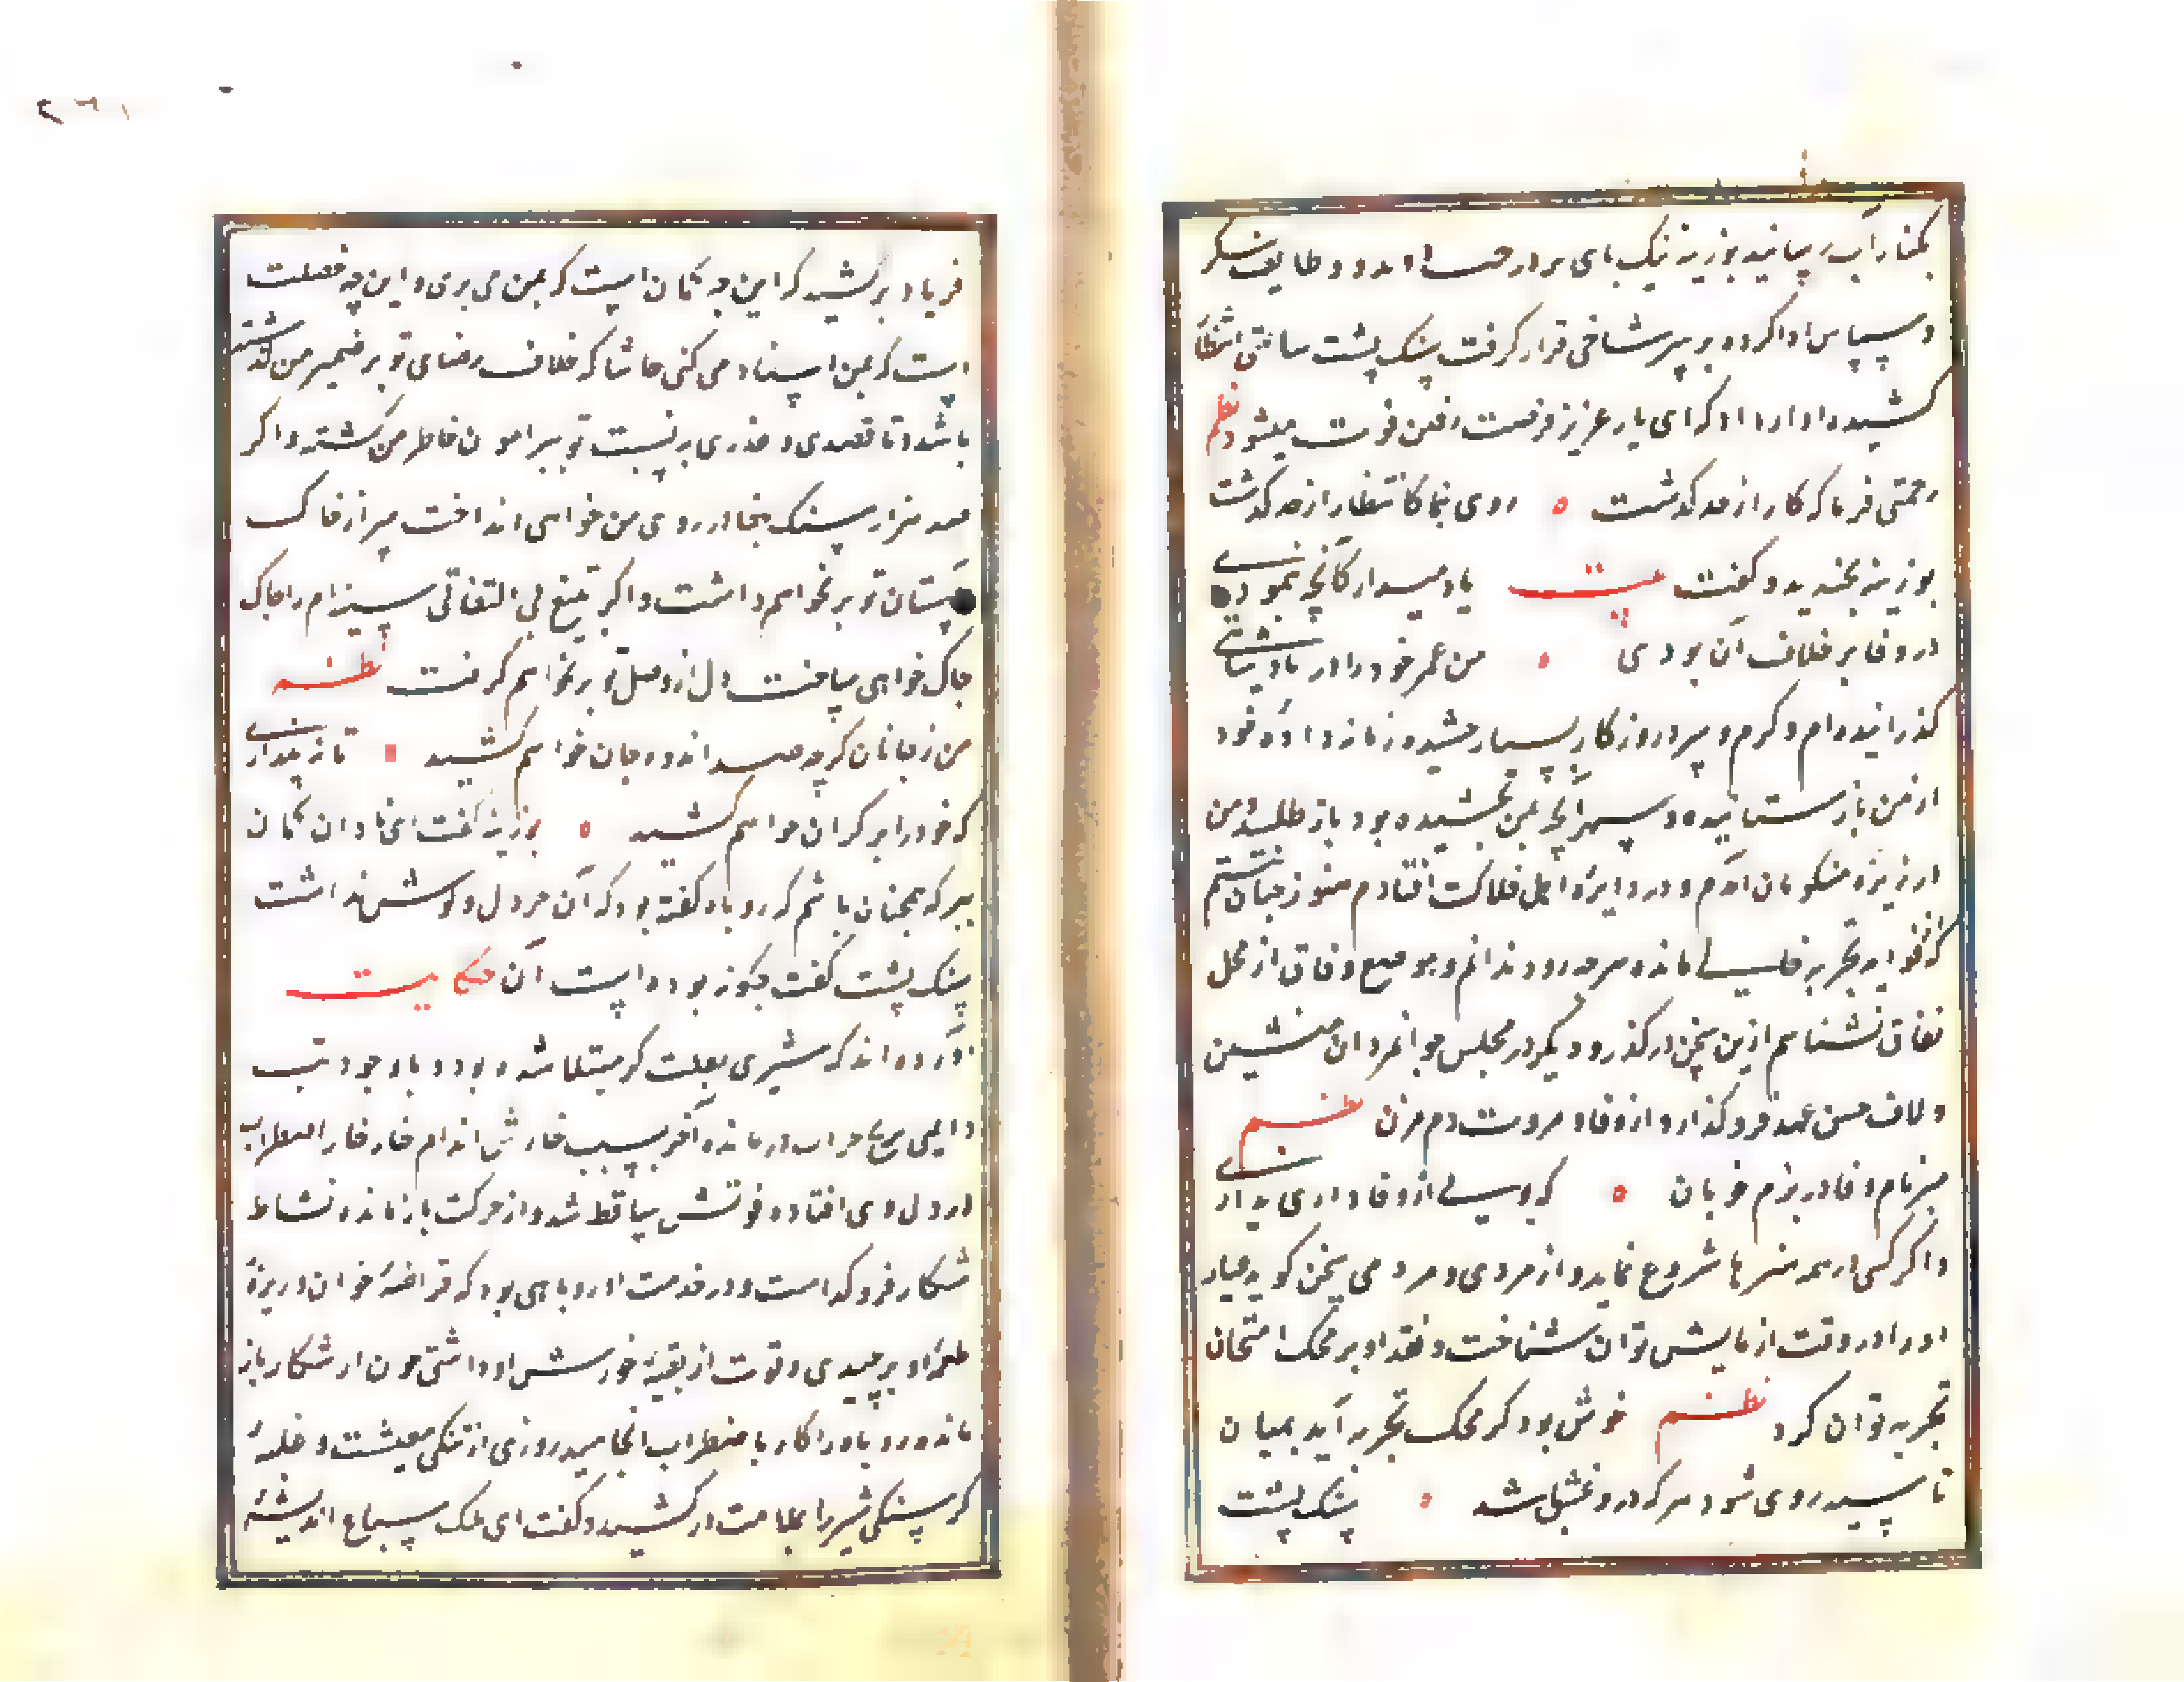 بکنار آب رسانید بوزینه تک پای بر درخت و وظایف شکر
و سپاس ادا کرده بر سر شاخی قرار گرفت سنک پشت ساعتی انتظار
کشیده آواز داد که ای یار عزیز فرصت رفتن فوت میشود نظم
رحمتی فرما که کار از حد گذشت روی بنما کانتظار از حد گذشت
بوزینه بخندید و گفت بیت یاد میدار کانچه بنمودی
در وفا بر خلاف آن بودی من عمر خود را در پادشاهی
گذرانیده ام و گرم و سرد روزگار بسیار چشیده زمانه داده خود
از من باز ستانیده و سپهر آنچه بمن بخشیده بود باز طلبیده من
از زمره منکوبان آمدم و در دایره اهل فلاکت افتادم هنوز چنان نیستم
که از فواید تجربه خالی مانده سره رود ندانم و موضع وفاق از محل
نفاق نشناسم ازین سخن درگذر و دیگر در مجلس جوانمردان منشین
و لاف حسن عهد فرو گذار و از وفا و مروت دم مزن نظم
مبر نام وفا در بزم خوبان که بویی از وفاداری نداری
و اگر کسی در همه هنرها شروع نماید و از مردی و مردمی سخن گوید عیار
او را در وقت آزمایش توان شناخت و نقد او بر محک امتحان
تجربه توان کرد نظم خوش بود گر محک تجربه آید بمیان
تا سیه روی شود هر که درو غش باشد سنک پشت
۲۳۱
فریاد برکشید که این چه گمان است که بمن می بری و این چه خصلت
است که بمن اسناد می کنی حاشا که خلاف رضای تو بر ضمیر من گذشته
باشد و یا قصدی و غدری به نسبت تو پیرامون خاطر من گشته و اگر
صد هزار سنک جفا در روی من خواهی انداخت سر از خاک
آستان تو بر نخواهم داشت و اگر بتیغ بی التفاتی سینه ام را چاک
چاک خواهی ساخت دل از وصل تو بر نخواهم گرفت نظم
من ز جانان گرچه صد اندوه جان خواهم کشید تا نپنداری
که خود را بر کران خواهم کشید بوزینه گفت ای نادان گمان
مبر که همچنان باشم که روباه گفته بود که آن خر دل و گوش نداشت
سنک پشت گفت چگونه بوده است آن حکایت
آورده اند که شیری بعلت گر مبتلا شده بود و با وجود تب
دایمی در مانده آخر بسبب خارش اندام خار خار اضطراب
در دل وی افتاده قوتش ساقط شد و از حرکت بازمانده نشاط
شکار فرو گذاشت و در خدمت او روباهی بود که قراضه خوان و ریزه
طعمه او برچیدی و قوت از بقیه خورش او داشتی چون از شکار باز
ماند و روباه را کار باضطراب انجامید روزی از تنگی معیشت و غلبه
گرسنگی شیر را بملامت در کشید و گفت ای ملک سباع اندیشه